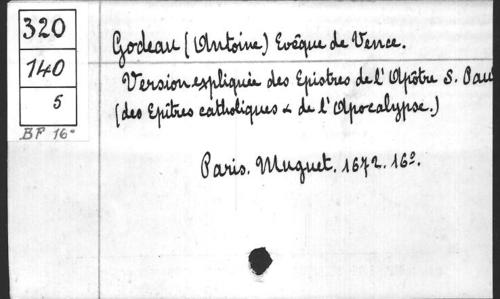 320
140
5
BF 16°
Godeau (Antoine) Evêque de Vence.
Version expliquée des Epistres de l'Apôtre S. Paul
(des Epîtres catholiques & de l'Apocalypse.)
Paris. Muguet. 1672. 16°.